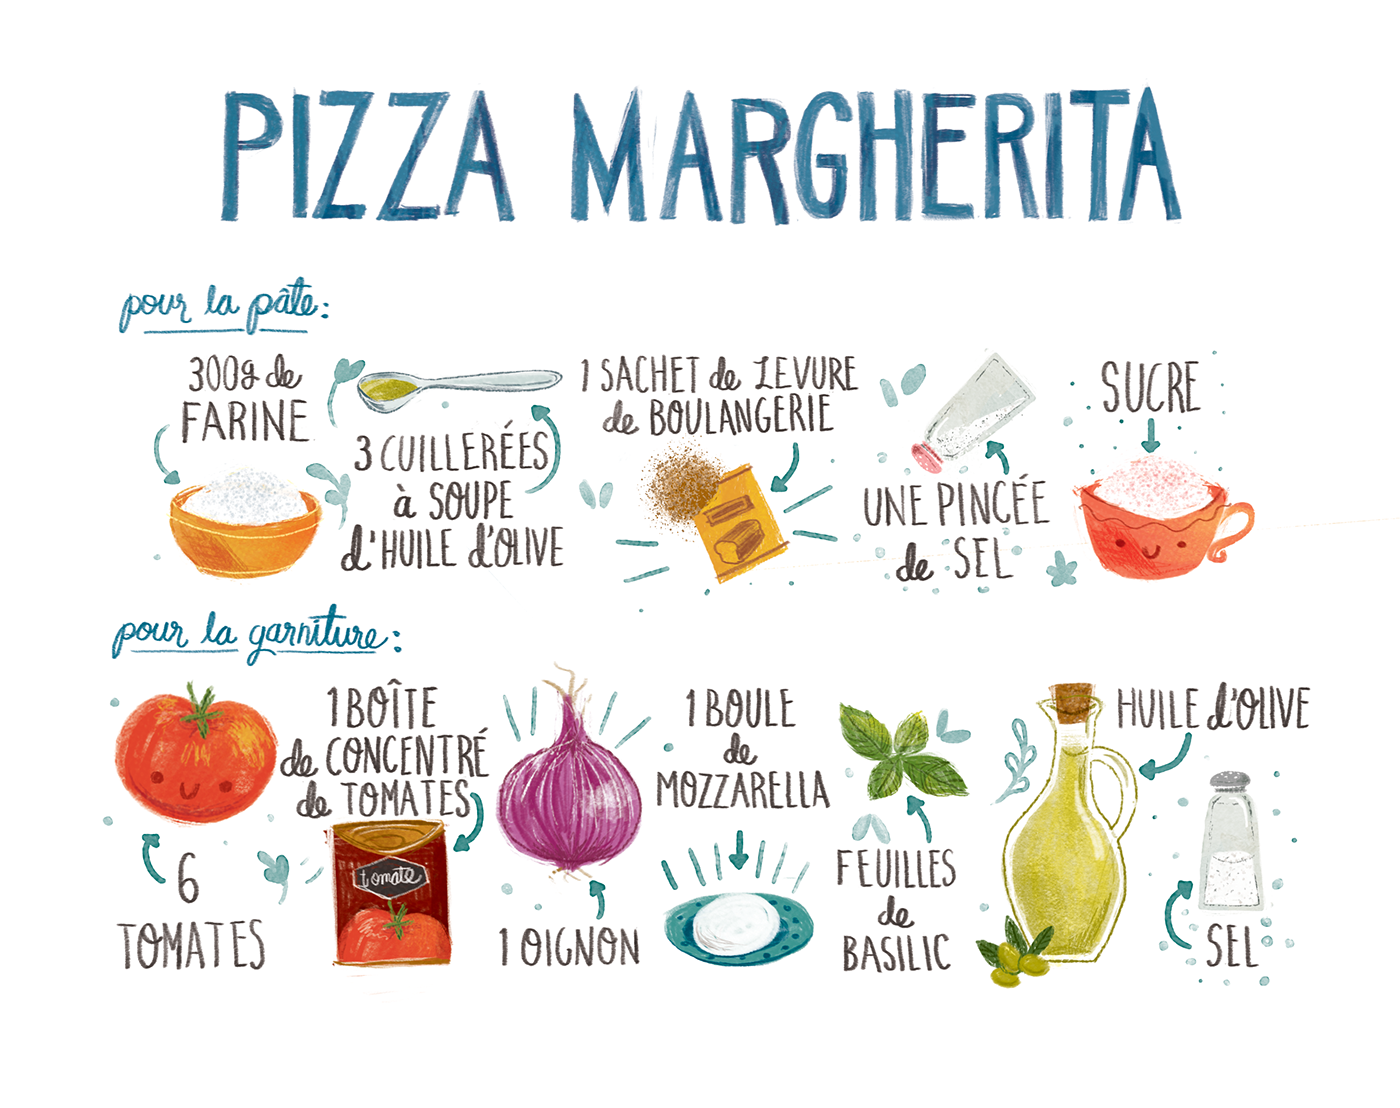 PIZZA MARGHERITA
pour la pâte:
300g de
FARINE
3 CUILLERÉES
à SOUPE
d'HUILE d'OLIVE
1 SACHET de LEVURE
de BOULANGERIE
UNE PINCÉE
de SEL
SUCRE
pour la garniture:
6
TOMATES
1 BOÎTE
de CONCENTRÉ
de TOMATES
tomate
1 OIGNON
1 BOULE
de
MOZZARELLA
FEUILLES
de
BASILIC
HUILE d'OLIVE
SEL